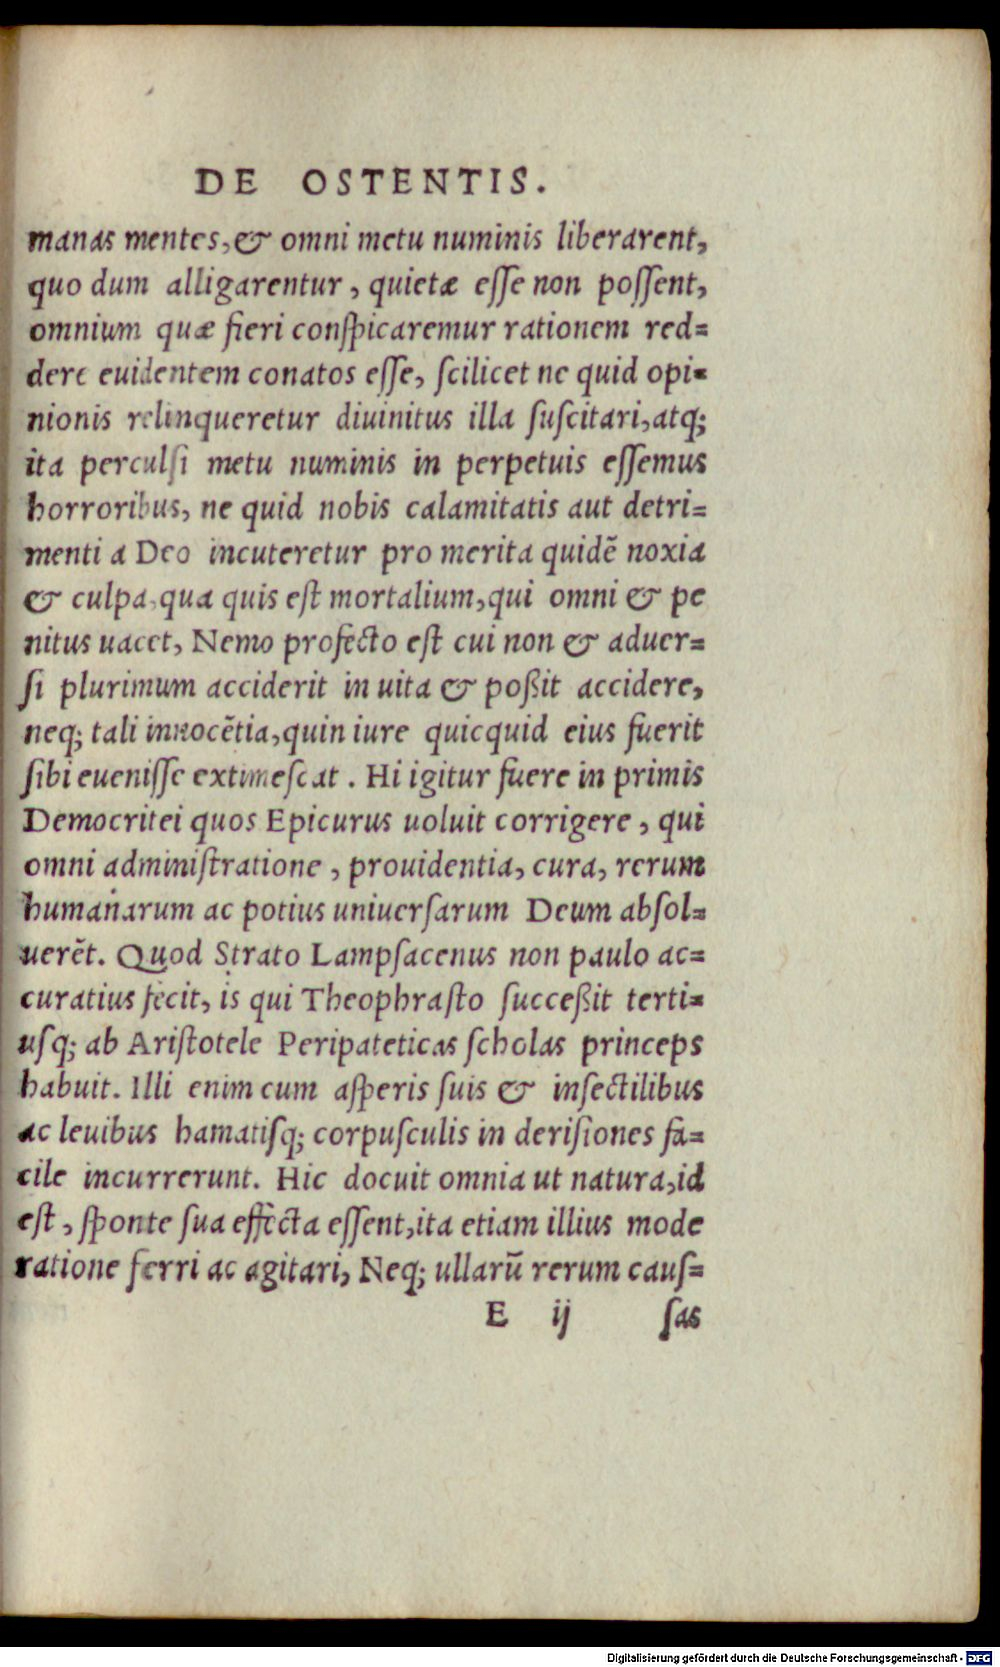 DE OSTENTIS.
manas mentes, & omni metu numinis liberarent,
quo dum alligarentur, quietæ eſſe non poſſent,
omnium quæ fieri conſpicaremur rationem red=
dere euidentem conatos eſſe, ſcilicet ne quid opi=
nionis relinqueretur diuinitus illa ſuſcitari, atq;
ita perculſi metu numinis in perpetuis eſſemus
horroribus, ne quid nobis calamitatis aut detri=
menti a Deo incuteretur pro merita quidẽ noxia
& culpa, qua quis eſt mortalium, qui omni & pe
nitus uacet, Nemo profecto eſt cui non & aduer=
ſi plurimum acciderit in uita & poßit accidere,
neq; tali innocẽtia, quin iure quicquid eius fuerit
ſibi eueniſſe extimeſcat. Hi igitur fuere in primis
Democritei quos Epicurus uoluit corrigere, qui
omni adminiſtratione, prouidentia, cura, rerum
humanarum ac potius uniuerſarum Deum abſol=
uerẽt. Quod Strato Lampſacenus non paulo ac=
curatius fecit, is qui Theophraſto ſucceßit terti=
uſq; ab Ariſtotele Peripateticas ſcholas princeps
habuit. Illi enim cum aſperis ſuis & inſectilibus
ac leuibus hamatiſq; corpuſculis in deriſiones fa=
cile incurrerunt. Hic docuit omnia ut natura, id
eſt, ſponte ſua effecta eſſent, ita etiam illius mode
ratione ferri ac agitari, Neq; ullarũ rerum cauſ=
E ij ſas
Digitalisierung gefördert durch die Deutsche Forschungsgemeinschaft - DFG